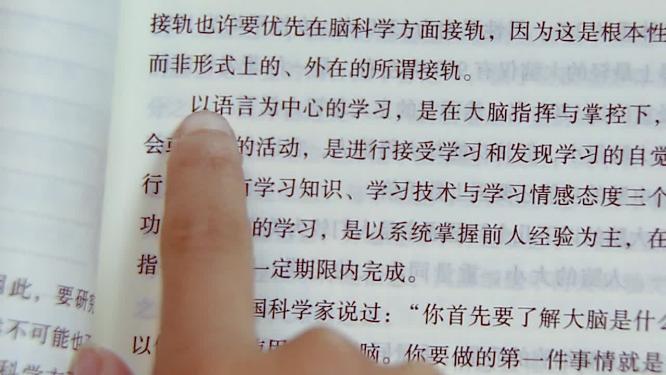 接轨也许要优先在脑科学方面接轨，因为这是根本性
而非形式上的、外在的所谓接轨。
以语言为中心的学习，是在大脑指挥与掌控下，
会 的活动，是进行接受学习和发现学习的自觉
行 有学习知识、学习技术与学习情感态度三个
功 的学习，是以系统掌握前人经验为主，在
指 一定期限内完成。
国科学家说过：“你首先要了解大脑是什么
以 脑。你要做的第一件事情就是
因此，要研究
不可能也
科学